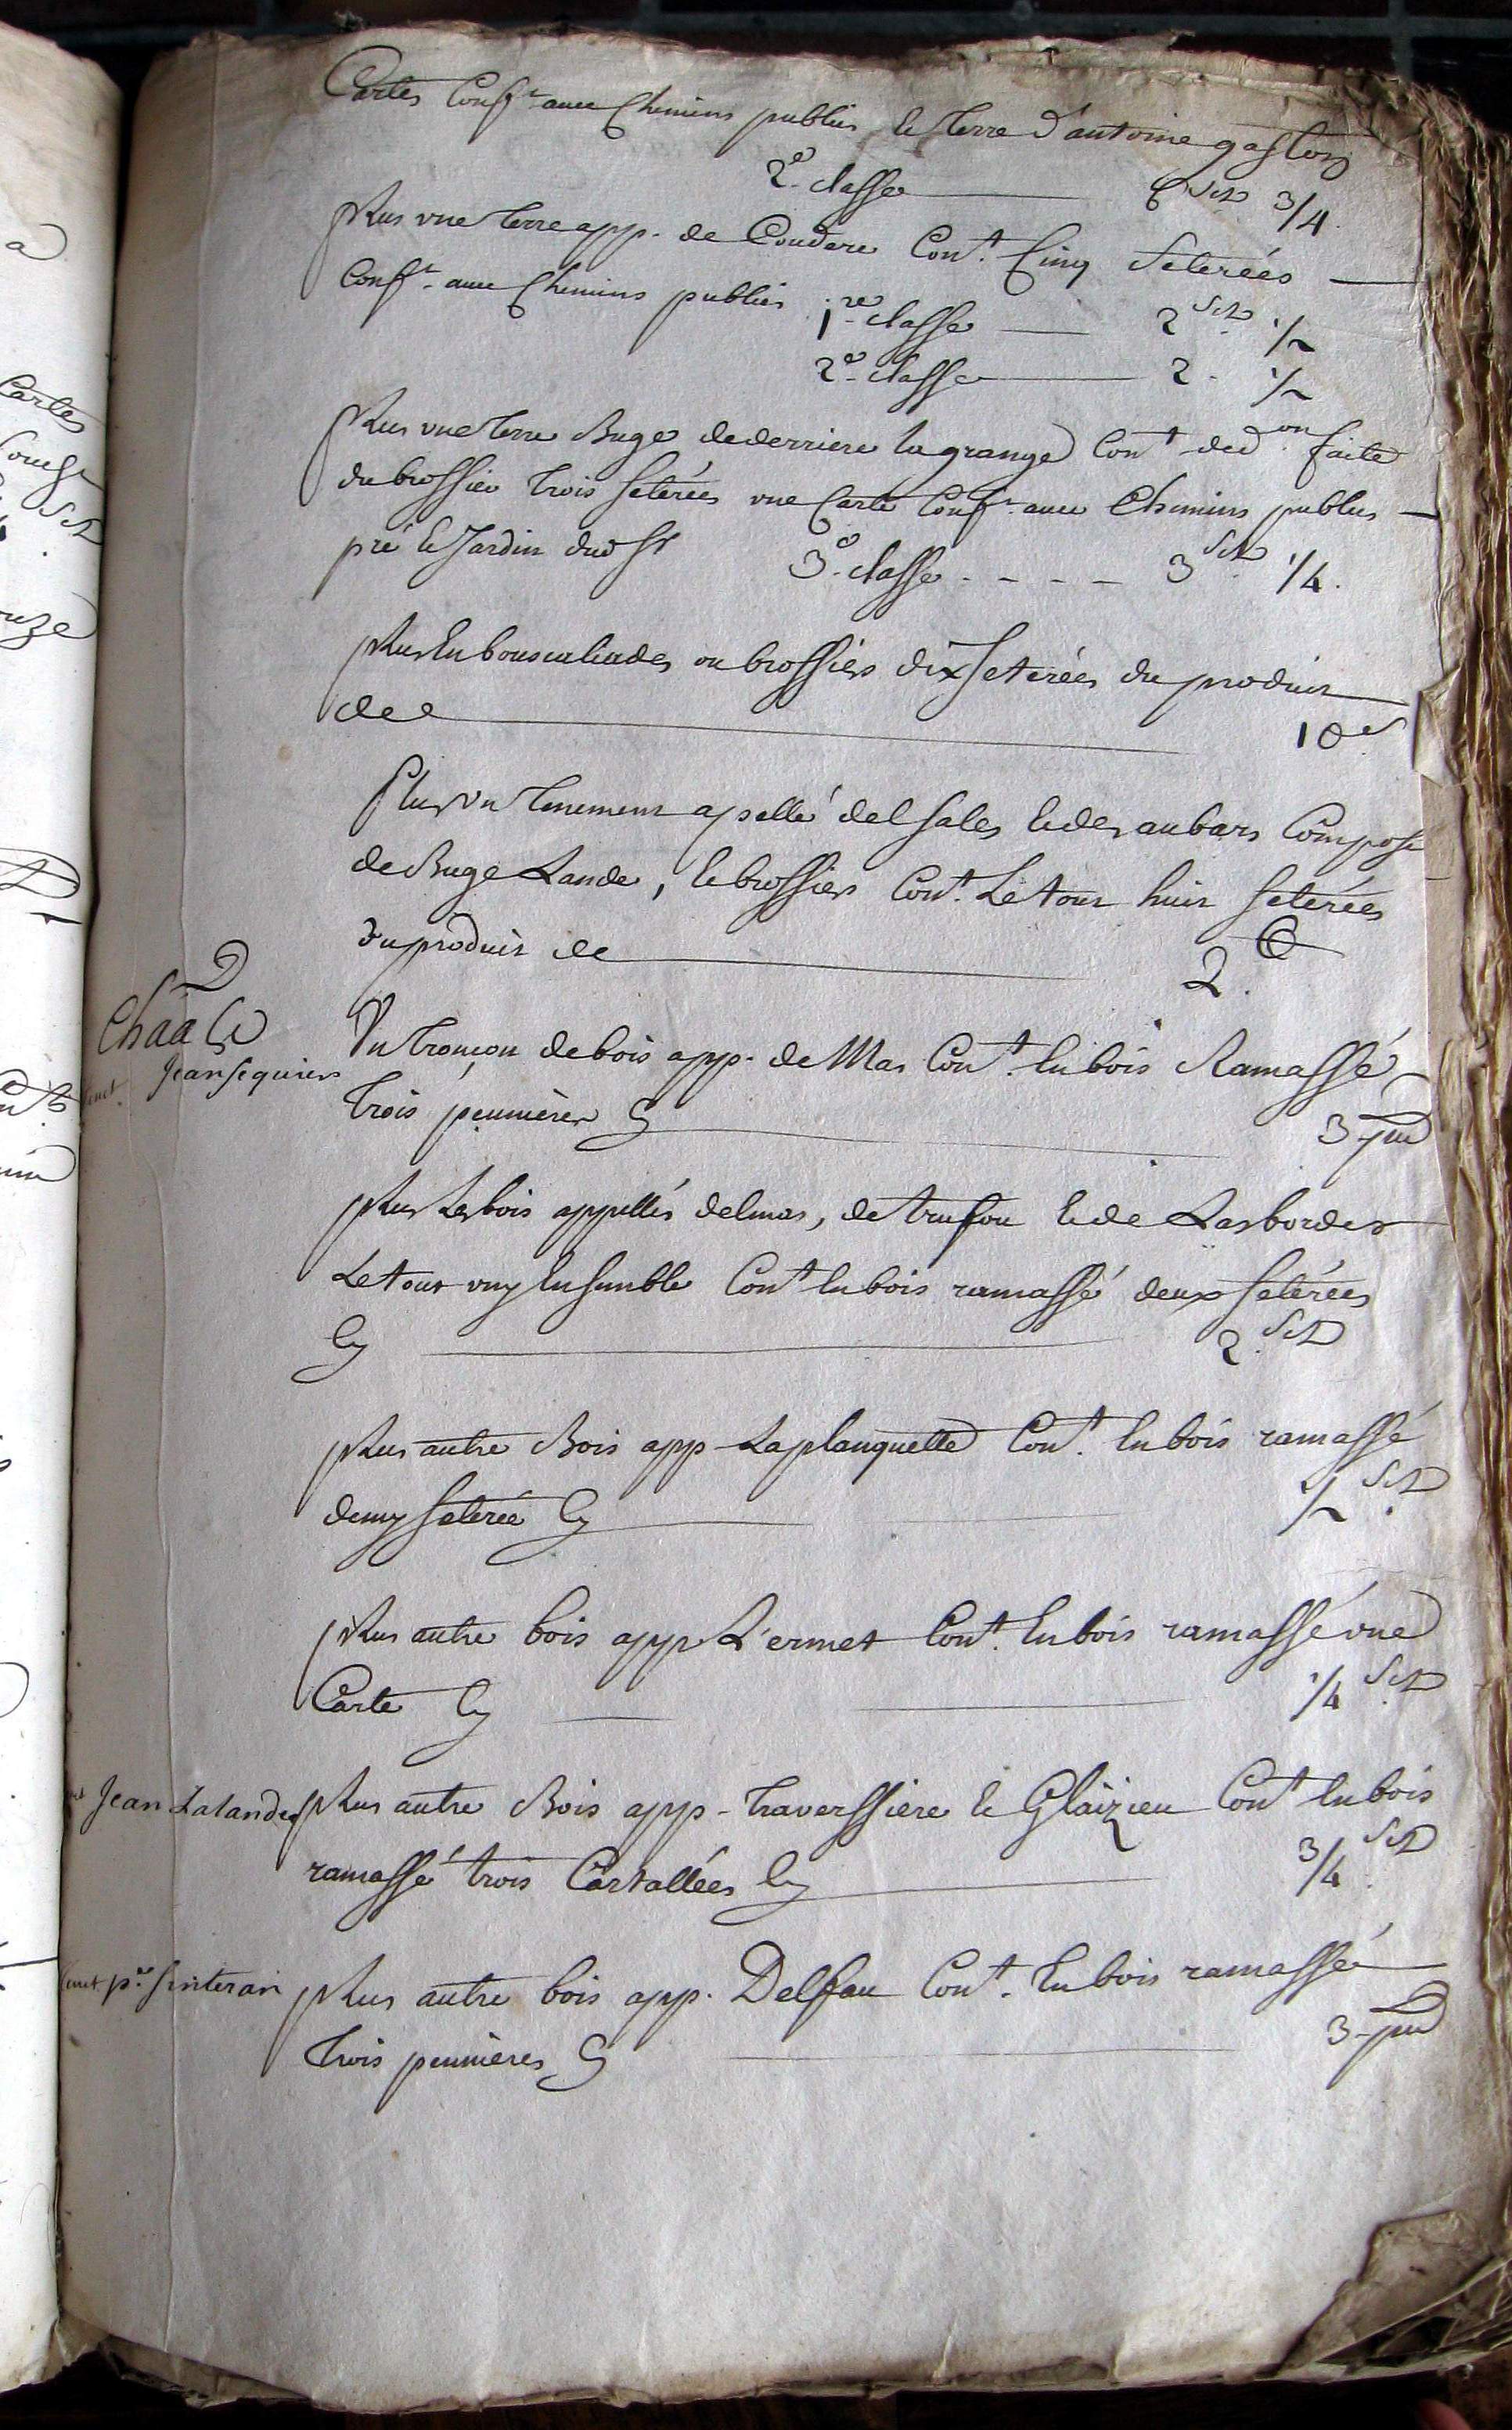 Cartes Conf.t aux Chemins publics, & terre d'antoine gaston
2.e classe 6 set 3/4
plus une terre app. de Couderc Cont. Cinq Seterées
Conf.t aux Chemins publics 1.re classe 2 set 1/2
2.e classe 2. 1/2
plus une terre Buge de derriere la grange Cont ded.on faite
du brossier trois seterées une Carte Conf.t aux Chemins publics
pré & Jardin dud Sr 3.e classe - - - - 3 set 1/4.
plus En bouscaliades ou brossiers dix seterées du produit
de 10 s
Plus un tenement apellé del sales & des aubars Composé
de Buge Lande, & brossiers Cont. Le tout huit seterées
du produit de 2.
2
Chaa
Jean seguiers
Un tronçon de bois app. de Mas Cont. En bois Ramassé
trois pennières Cy 3 pen
plus Les bois appellés delmas, de trufou & de Lasbordes
Le tout uny Ensemble Cont En bois ramassé deux seterées
Cy 2. set
plus autre Bois app Laplanquette Cont. En bois ramassé
demy seterée Cy 1/2 set
plus autre bois app L'ermet Cont. En bois ramassé une
Carte Cy 1/4 set
Jean Lalandes plus autre Bois app - traverssiere & Glaizieu Cont En bois
ramassé trois Cartallées Cy 3/4 set
p.re sinteran plus autre bois app. Delfau Cont. En bois ramassé
trois pennières Cy 3 - pen